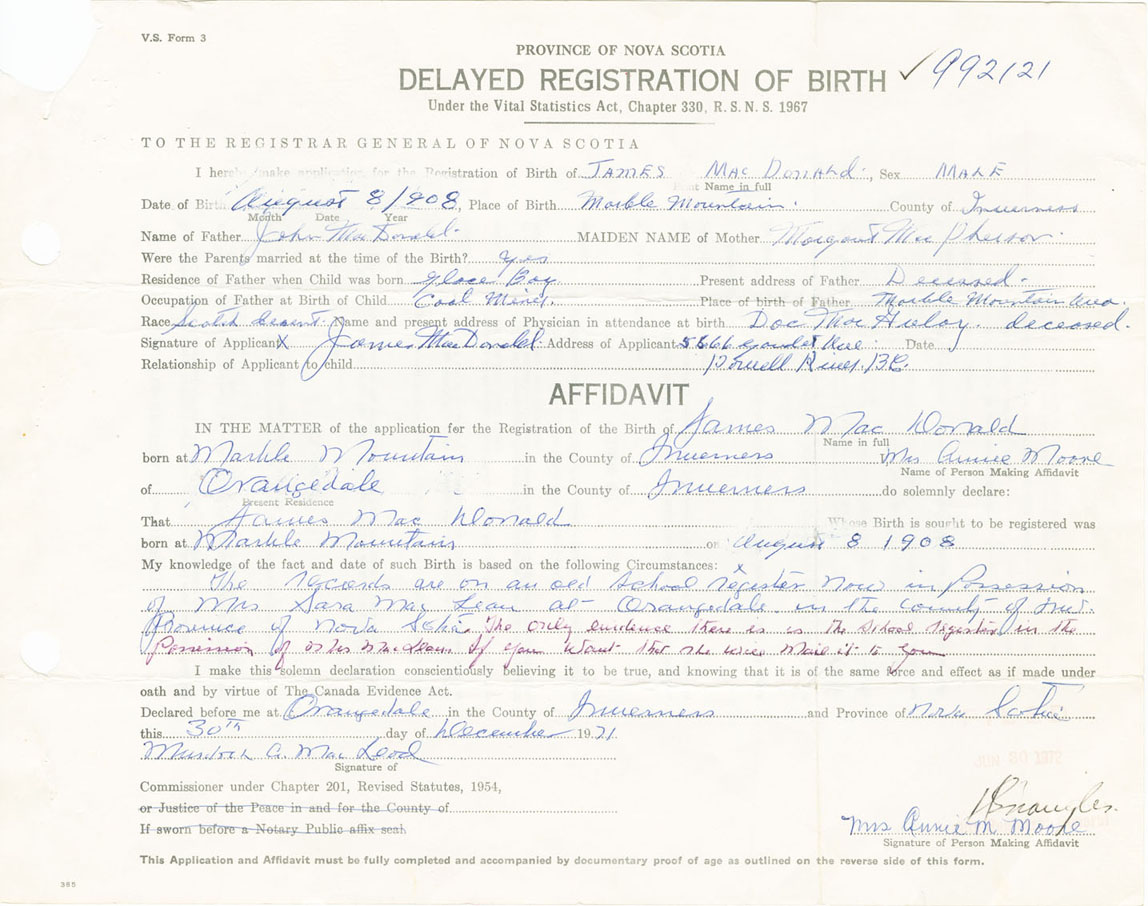 V.S. Form 3
PROVINCE OF NOVA SCOTIA
DELAYED REGISTRATION OF BIRTH ✓ 992121
Under the Vital Statistics Act, Chapter 330, R.S.N.S. 1967
TO THE REGISTRAR GENERAL OF NOVA SCOTIA
I hereby make application for the Registration of Birth of JAMES MAC DONALD., Sex MALE
Print Name in full
Date of Birth August 8/1908, Place of Birth Marble Mountain. County of Inverness
Month Date Year
Name of Father John MacDonald. MAIDEN NAME of Mother Margaret MacPherson.
Were the Parents married at the time of the Birth? yes
Residence of Father when Child was born Glace Bay. Present address of Father Deceased.
Occupation of Father at Birth of Child Coal Miner. Place of birth of Father Marble Mountain Area.
Race Scotch descent. Name and present address of Physician in attendance at birth Doc deceased.
Signature of Applicant X James MacDonald. Address of Applicant 5866 Ave Date
Relationship of Applicant to child Powell River. B.C.
AFFIDAVIT
IN THE MATTER of the application for the Registration of the Birth of James Mac Donald
Name in full
born at Marble Mountain in the County of Inverness Mrs Annie Moore
Name of Person Making Affidavit
of Orangedale in the County of Inverness do solemnly declare:
Present Residence
That James Mac Donald Whose Birth is sought to be registered was
born at Marble Mountain on August 8 1908
My knowledge of the fact and date of such Birth is based on the following Circumstances:
The records are on an old School register now in Possession
of Mrs Sara MacLean at Orangedale in the County of Inv.
Province of Nova Scotia. The only evidence there is is the School register in the
Possession of Mrs MacLean. If you want that she will Mail it to you
I make this solemn declaration conscientiously believing it to be true, and knowing that it is of the same force and effect as if made under
oath and by virtue of The Canada Evidence Act.
Declared before me at Orangedale in the County of Inverness and Province of Nova Scotia
this 30th day of December 1971
Murdoch A. MacLeod
Signature of
JUN 30 1972
Commissioner under Chapter 201, Revised Statutes, 1954,
or Justice of the Peace in and for the County of
If sworn before a Notary Public affix seal.
Mrs Annie M Moore
Signature of Person Making Affidavit
This Application and Affidavit must be fully completed and accompanied by documentary proof of age as outlined on the reverse side of this form.
385